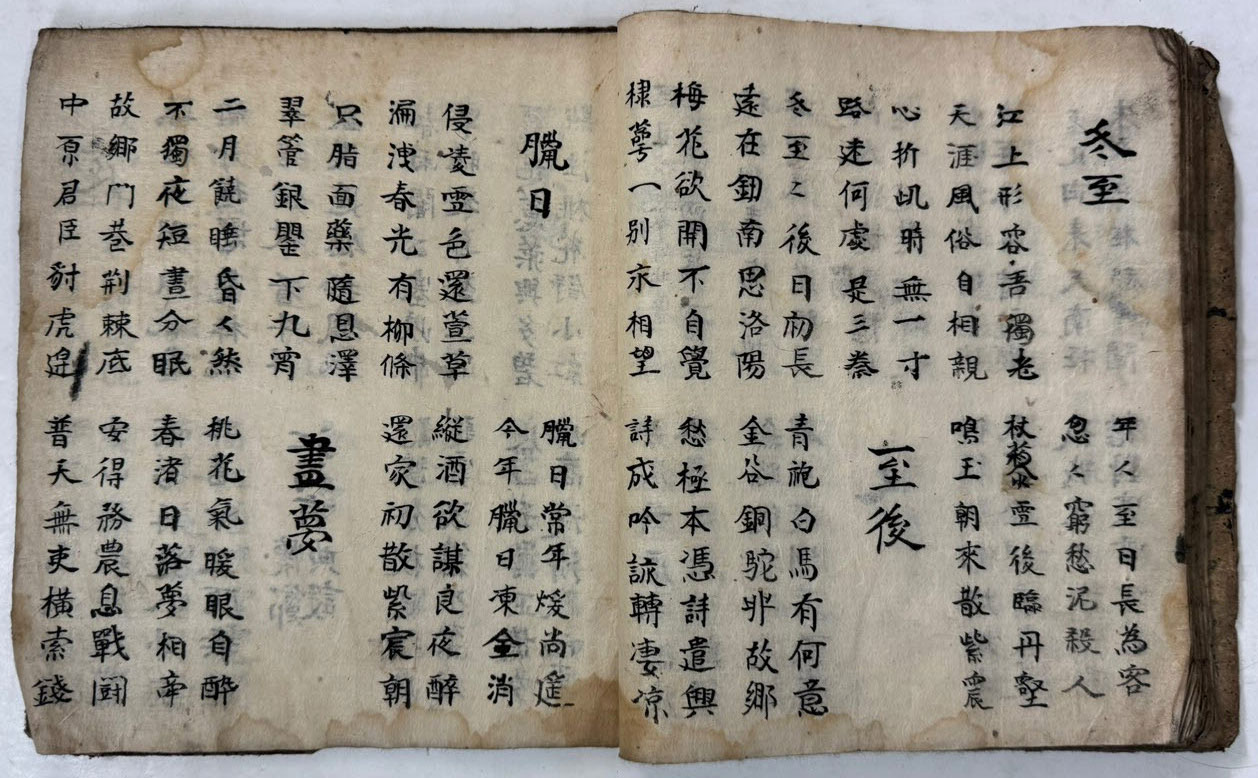 冬至
年々至日長為客
忽々窮愁泥殺人
江上形容吾獨老
天涯風俗自相親
杖藜雪後臨丹壑
鳴玉朝來散紫宸
心折此時無一寸
路迷何處是三秦
至後
冬至々後日初長
遠在釰南思洛陽
青袍白馬有何意
金谷銅駝非故鄉
梅花欲開不自覺
棣萼一別永相望
愁極本憑詩遣興
詩成吟詠轉凄凉
臘日
臘日常年煖尚遙
今年臘日凍全消
侵凌雪色還萱草
漏洩春光有柳條
縱酒欲謀良夜醉
還家初散紫宸朝
只脂面藥隨恩澤
翠管銀罌下九霄
晝夢
二月饒睡昏々然
不獨夜短晝分眠
桃花氣暖眼自醉
春渚日落夢相牽
故鄉門巷荊棘底
中原君臣豺虎邊
安得務農息戰鬪
普天無吏橫索錢